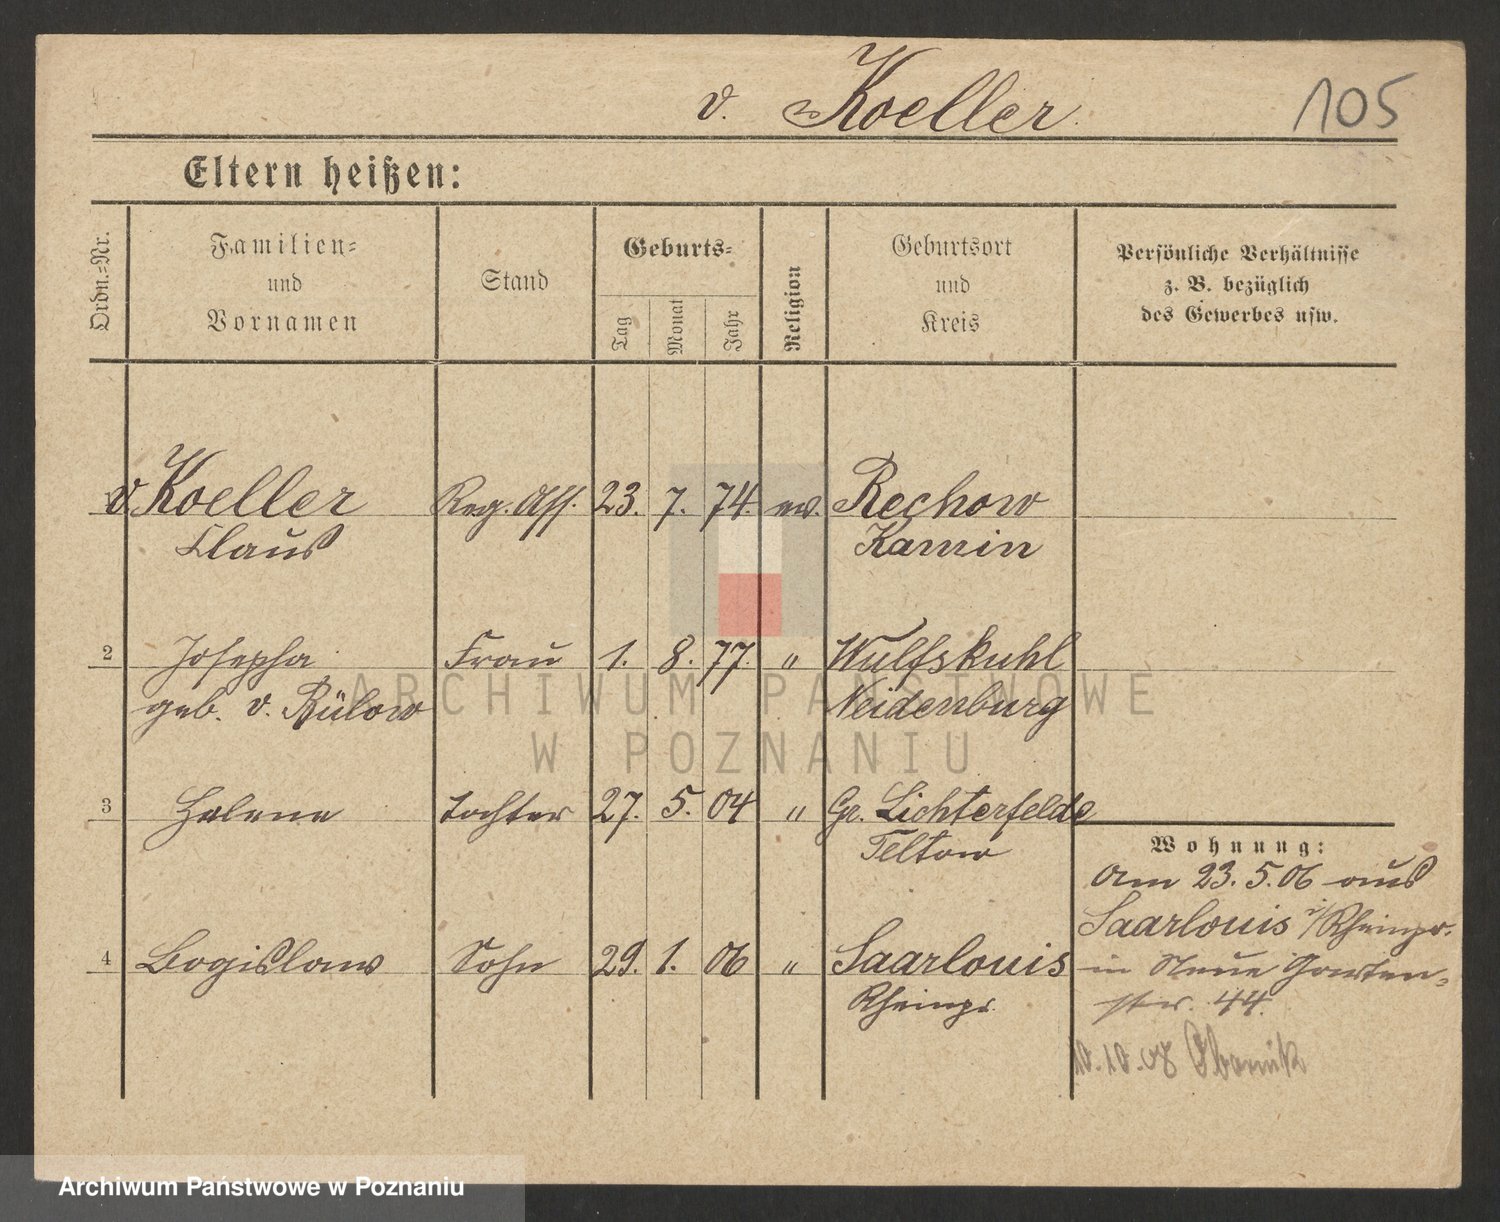 v. Koeller
105
Eltern heißen:
Ordn.-Nr.
Familien-
und
Vornamen
Stand
Geburts-
Tag
Monat
Jahr
Religion
Geburtsort
und
Kreis
Persönliche Verhältnisse
z. B. bezüglich
des Gewerbes usw.
v. Koeller Reg. Ass. 23. 7. 74. ev. Rechow
Claus Kamin
2 Josepha Frau 1. 8. 77. " Wulfskuhl
geb. v. Bülow Neidenburg
3 Helene Tochter 27. 5. 04 " Gr. Lichterfelde
Teltow
4 Bogislaw Sohn 29. 1. 06 " Saarlouis
Rheinpr.
Wohnung:
Am 23. 5. 06 aus
Saarlouis i/Rheinpr.
in Neue Garten-
str. 44.
10. 08 Obornik
ARCHIWUM PAŃSTWOWE
W POZNANIU
Archiwum Państwowe w Poznaniu